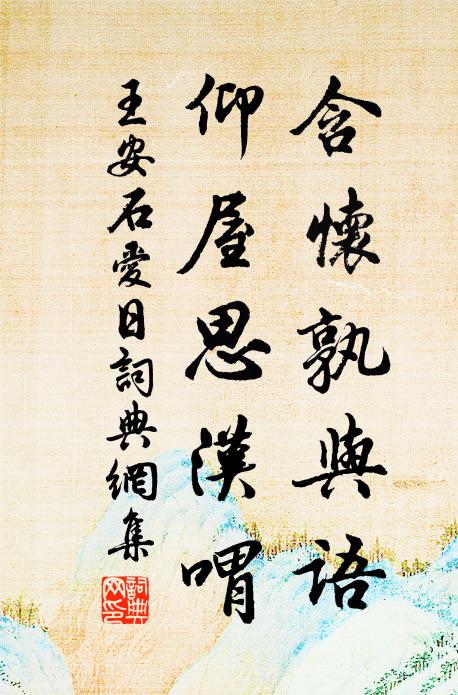 含懷孰與語
仰屋思漢喟
王安石愛日詞典網集
詞典
网印